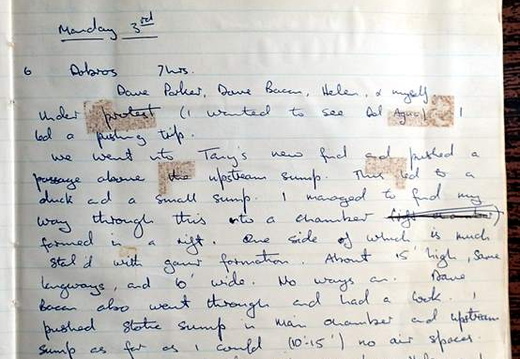 Monday 3rd
6 Dobros 7hrs.
Dave Parker, Dave Bacon, Helen, & myself
Under protest (I wanted to see Dol Agua) I
led a pushing trip.
We went into Tany's new find and pushed a
passage above the upstream sump. This led to a
duck and a small sump. I managed to find my
way through this into a chamber
formed in a rift. One side of which is much
stal'd with gour formation. About 15' high, same
longways, and 6' wide. No ways on. Dave
Bacon also went through and had a look. I
pushed static sump in main chamber and upstream
sump as far as I could (10-15') no air spaces.